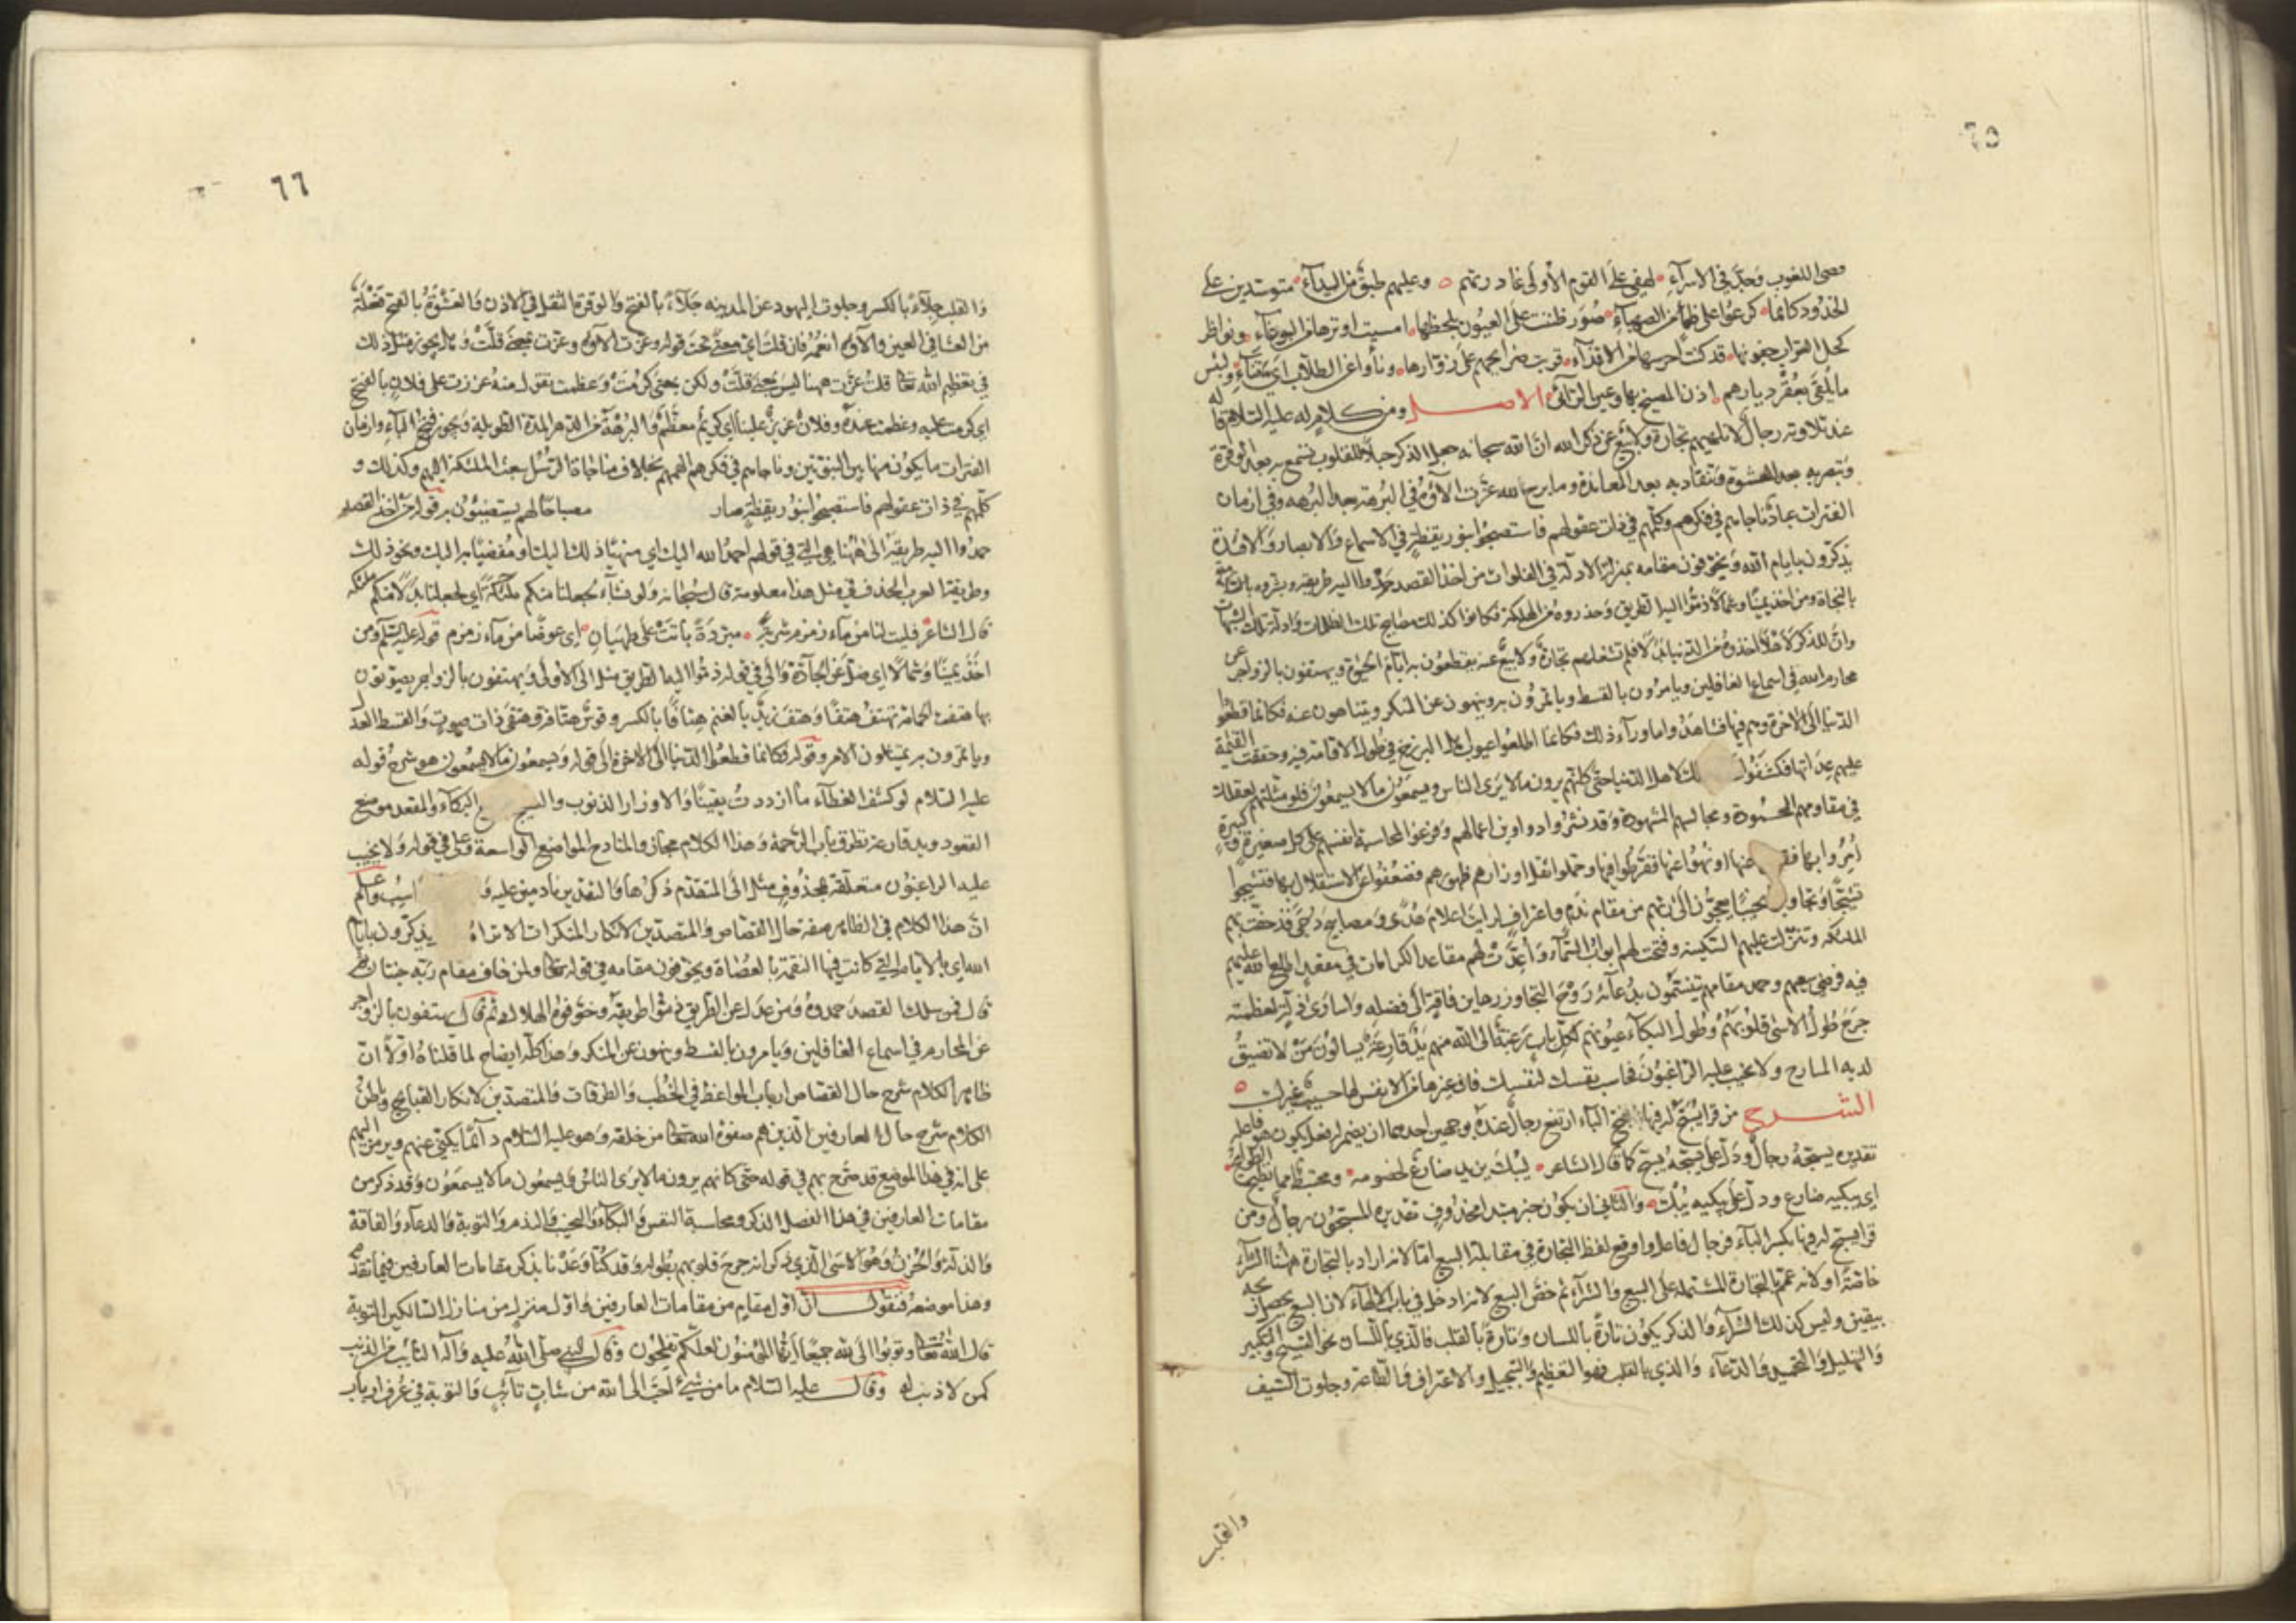 ٦٥
لهفي على القوم الأولى غادرتهم وعليهم طبق من البيداء متوسدين على
الخدود كأنما كرعوا على ظمأ من الصهباء صور ظننت على العيون بلحظها امسيت اوترها من البوغاء ونواظر
كحل التراب جفونها قد كنت احرسها من الاقذاء قربت ضرائحهم على زوارها ونأوا عن الطلاب اي تناء ولبئس
ما يلقى بعقر ديارهم اذن المصيخ بها وعين الرائي الاصل ومن كلام له عليه السلام قاله
عند تلاوته رجال لا تلهيهم تجارة ولا بيع عن ذكر الله ان الله سبحانه جعل الذكر جلاء للقلوب تسمع به بعد الوقرة
وتبصر به بعد العشوة وتنقاد به بعد المعاندة وما برح لله عزت آلاؤه في البرهة بعد البرهة وفي ازمان
الفترات عباد ناجاهم في فكرهم وكلمهم في ذات عقولهم فاستصبحوا بنور يقظة في الاسماع والابصار والافئدة
يذكرون بايام الله ويخوفون مقامه بمنزلة الادلة في الفلوات من اخذ القصد حمدوا اليه طريقه وبشروه
بالنجاة ومن اخذ يمينا وشمالا ذموا اليه الطريق وحذروه من الهلكة فكانوا كذلك مصابيح تلك الظلمات وادلة تلك الشبهات
وان للذكر لاهلا اخذوه من الدنيا بدلا فلم تشغلهم تجارة ولا بيع عنه يقطعون به ايام الحيوة ويهتفون بالزواجر عن
محارم الله في اسماع الغافلين ويامرون بالقسط وياتمرون به وينهون عن المنكر ويتناهون عنه فكانما قطعوا
الدنيا الى الآخرة وهم فيها فشاهدوا ما وراء ذلك فكانما اطلعوا عيوب اهل البرزخ في طول الاقامة فيه وحققت القيمة
عليهم عداتها فكشفوا لك لاهل الدنيا حتى كانهم يرون ما لا يرى الناس ويسمعون ما لا يسمعون فلو مثلتهم لعقلك
في مقاومهم المحمودة ومجالسهم المشهودة وقد نشروا دواوين اعمالهم وفرغوا لمحاسبة انفسهم على كل صغيرة وكبيرة
امروا بها فقصروا عنها او نهوا عنها ففرطوا فيها وحملوا ثقل اوزارهم ظهورهم فضعفوا عن الاستقلال بها فنشجوا
نشيجا وتجاوبوا نحيبا يعجون الى ربهم من مقام ندم واعتراف لرايت اعلام هدى ومصابيح دجى قد حفت بهم
الملئكة وتنزلت عليهم السكينة وفتحت لهم ابواب السماء واعدت لهم مقاعد الكرامات في مقعد اطلع الله عليهم
فيه فرضي سعيهم وحمد مقامهم يتنسمون بدعائه روح التجاوز رهاين فاقة الى فضله واسارى ذلة لعظمته
جرح طول الاسى قلوبهم وطول البكاء عيونهم لكل باب رغبة الى الله منهم يد قارعة يسالون من لا تضيق
لديه المنادح ولا يخيب عليه الراغبون فحاسب نفسك لنفسك فان غيرها من الانفس لها حسيب غيرك
الشرح من قرا يسبح له فيها بفتح الباء ارتفع رجال عنده بوجهين احدهما ان يضمر له فعل يكون هو فاعله
تقديره يسبحه رجال ودل على يسبحه يسبح كما قال الشاعر ليبك يزيد ضارع لخصومه ومختبط مما تطيح الطوائح
اي يبكيه ضارع ودل على يبكيه ليبك والثاني ان يكون خبر مبتدا محذوف تقديره المسبحون رجال ومن
قرا يسبح له فيها بكسر الباء فرجال فاعل واوقع لفظ التجارة في مقابلة البيع اما لانه اراد بالتجارة ههنا الشراء
خاصة او لانه عمم بالتجارة المشتملة على البيع والشراء ثم خص البيع لانه ادخل في باب الالهاء لان البيع يحصل ربحه
بيقين وليس كذلك الشراء والذكر يكون تارة باللسان وتارة بالقلب فالذي باللسان نحو التسبيح والتكبير
والتهليل والتحميد والدعاء والذي بالقلب فهو التعظيم والتبجيل والاعتراف والطاعة وجلوت السيف
والقلب
٦٦
والقلب جلاء بالكسر وجلوت اليهود عن المدينة جلاء بالفتح والوقرة الثقل في الاذن والعشوة بالفتح فعلة
من العشا في العين وآلاؤه انعمه فان قلت اي معنى تحت قوله وعزت آلاؤه وعزت بمعنى قلت وهل يجوز مثل ذلك
في تعظيم الله تعالى قلت عزت ههنا ليس بمعنى قلت ولكن بمعنى كرمت وعظمت تقول منه عززت على فلان بالفتح
اي كرمت عليه وعظمت عنده وفلان عزيز علينا اي كريم معظم والبرهة من الدهر المدة الطويلة ويجوز فتح الباء وازمان
الفترات ما يكون منها بين النبوتين وناجاهم في فكرهم الهمهم بخلاف مناجاة الرسل ببعث الملئكة اليهم وكذلك و
كلمهم في ذات عقولهم فاستصبحوا بنور يقظة صار مصباحا لهم يستضيئون به قوله من اخذ القصد
حمدوا اليه طريقه الى ههنا هي التي في قولهم احمد الله اليك اي منهيا ذلك اليك او مفضيا به اليك ونحو ذلك
وطريقة العرب الحذف في مثل هذا معلومة قال سبحانه ولو نشاء لجعلنا منكم ملئكة اي لجعلنا بدلا منكم ملئكة
قال الشاعر فليت لنا من ماء زمزم شربة مبردة باتت على طهيان اي عوضا من ماء زمزم قوله عليه السلام ومن
اخذ يمينا وشمالا اي ضل عن الجادة والى في قوله ذموا اليه الطريق مثل الى الاولى ويهتفون بالزواجر يصوتون
بها هتفت الحمامة تهتف هتفا وهتف زيد بالغنم هتافا بالكسر وقوس هتافة وهتفى ذات صوت والقسط العدل
وياتمرون به يمتثلون الامر وقوله فكانما قطعوا الدنيا الى الآخرة الى قوله ويسمعون ما لا يسمعون هو شرح قوله
عليه السلام لو كشف الغطاء ما ازددت يقينا والاوزار الذنوب والنشيج البكاء والمقعد موضع
القعود ويد قارعة تطرق باب الرحمة وهذا الكلام مجاز والمنادح المواضع الواسعة وعلى في قوله ولا يخيب
عليه الراغبون متعلقة بمحذوف مثل الى المتقدم ذكرها والتقدير نادمين عليه و اسيب واعلم
ان هذا الكلام في الظاهر صفة حال القصاص والمتصدين لانكار المنكرات الا تراه يذكرون بايام
الله اي بالايام التي كانت فيها النقمة بالعصاة ويخوفون مقامه في قوله تعالى ولمن خاف مقام ربه جنتان ثم
قال فمن سلك القصد حمدوه ومن عدل عن الطريق ذموا طريقه وخوفوه الهلاك ثم قال يهتفون بالزواجر
عن المحارم في اسماع الغافلين ويامرون بالقسط وينهون عن المنكر وهذا كله ايضاح لما قلناه اولا ان
ظاهر الكلام شرح حال القصاص ارباب المواعظ في الخطب والطرقات والمتصدين لانكار القبائح وباطن
الكلام شرح حال العارفين الذين هم صفوة الله تعالى من خلقه وهو عليه السلام دائما يكني عنهم ويرمز اليهم
على انه في هذا الموضع قد صرح بهم في قوله حتى كانهم يرون ما لا يرى الناس ويسمعون ما لا يسمعون وقد ذكر من
مقامات العارفين في هذا الفصل الذكر ومحاسبة النفس والبكاء والنحيب والندم والتوبة والدعاء والفاقة
والذلة والحزن وهو الاسى الذي ذكر انه جرح قلوبهم بطوله وقد كنا وعدنا بذكر مقامات العارفين فيما تقدم
وهذا موضعه فنقول ان اول مقام من مقامات العارفين واول منزل من منازل السالكين التوبة
قال الله تعالى وتوبوا الى الله جميعا ايها المؤمنون لعلكم تفلحون وقال النبي صلى الله عليه وآله التائب من الذنب
كمن لا ذنب له وقال عليه السلام ما من شيء احب الى الله من شاب تائب والتوبة في عرف ارباب